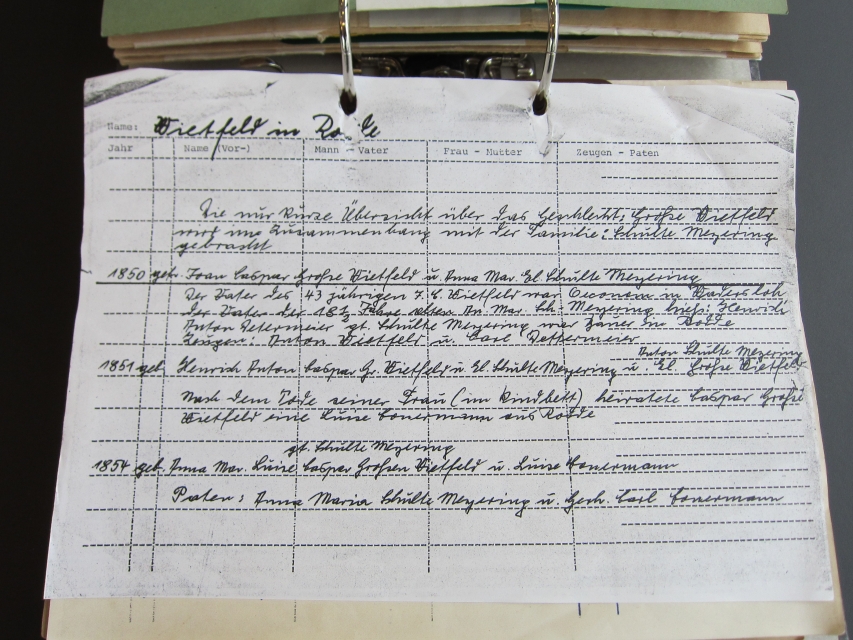 Name: Wietfeld in Rodde
Jahr Name (Vor-) Mann - Vater Frau - Mutter Zeugen - Paten
Die nur kurze Übersicht über das Geschlecht: Große Wietfeld
wird im Zusammenhang mit der Familie: Schulte Meyering
gebracht
1850 getr. Franz Caspar Große Wietfeld u. Anna Mar. El. Schulte Meyering
Der Vater des 43 jährigen F. C. Wietfeld war Oeconom in Wadersloh
der Vater der 18½ Jahre alten An. Mar. Sch. Meyering hieß: Henrich
Anton Petermeier gt. Schulte Meyering war in Rodde
Zeugen: Anton Wietfeld u. Carl Dettermeier
Anton Schulte Meyering
1851 geb. Henrich Anton Caspar Gr. Wietfeld u. El. Schulte Meyering u. El. Große Wietfeld
Nach dem Tode seiner Frau (im Kindbett) heiratete Caspar Große
Wietfeld eine Luise aus Rodde
gt. Schulte Meyering
1854 geb. Anna Mar. Luise Caspar Großen Wietfeld u. Luise
Paten: Anna Maria Schulte Meyering u. Gerh. Carl